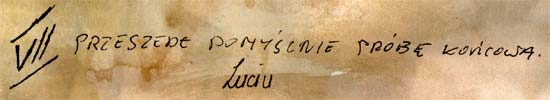 VII PRZESZEDŁ POMYŚLNIE PRÓBĘ KOŃCOWĄ.
Luciu